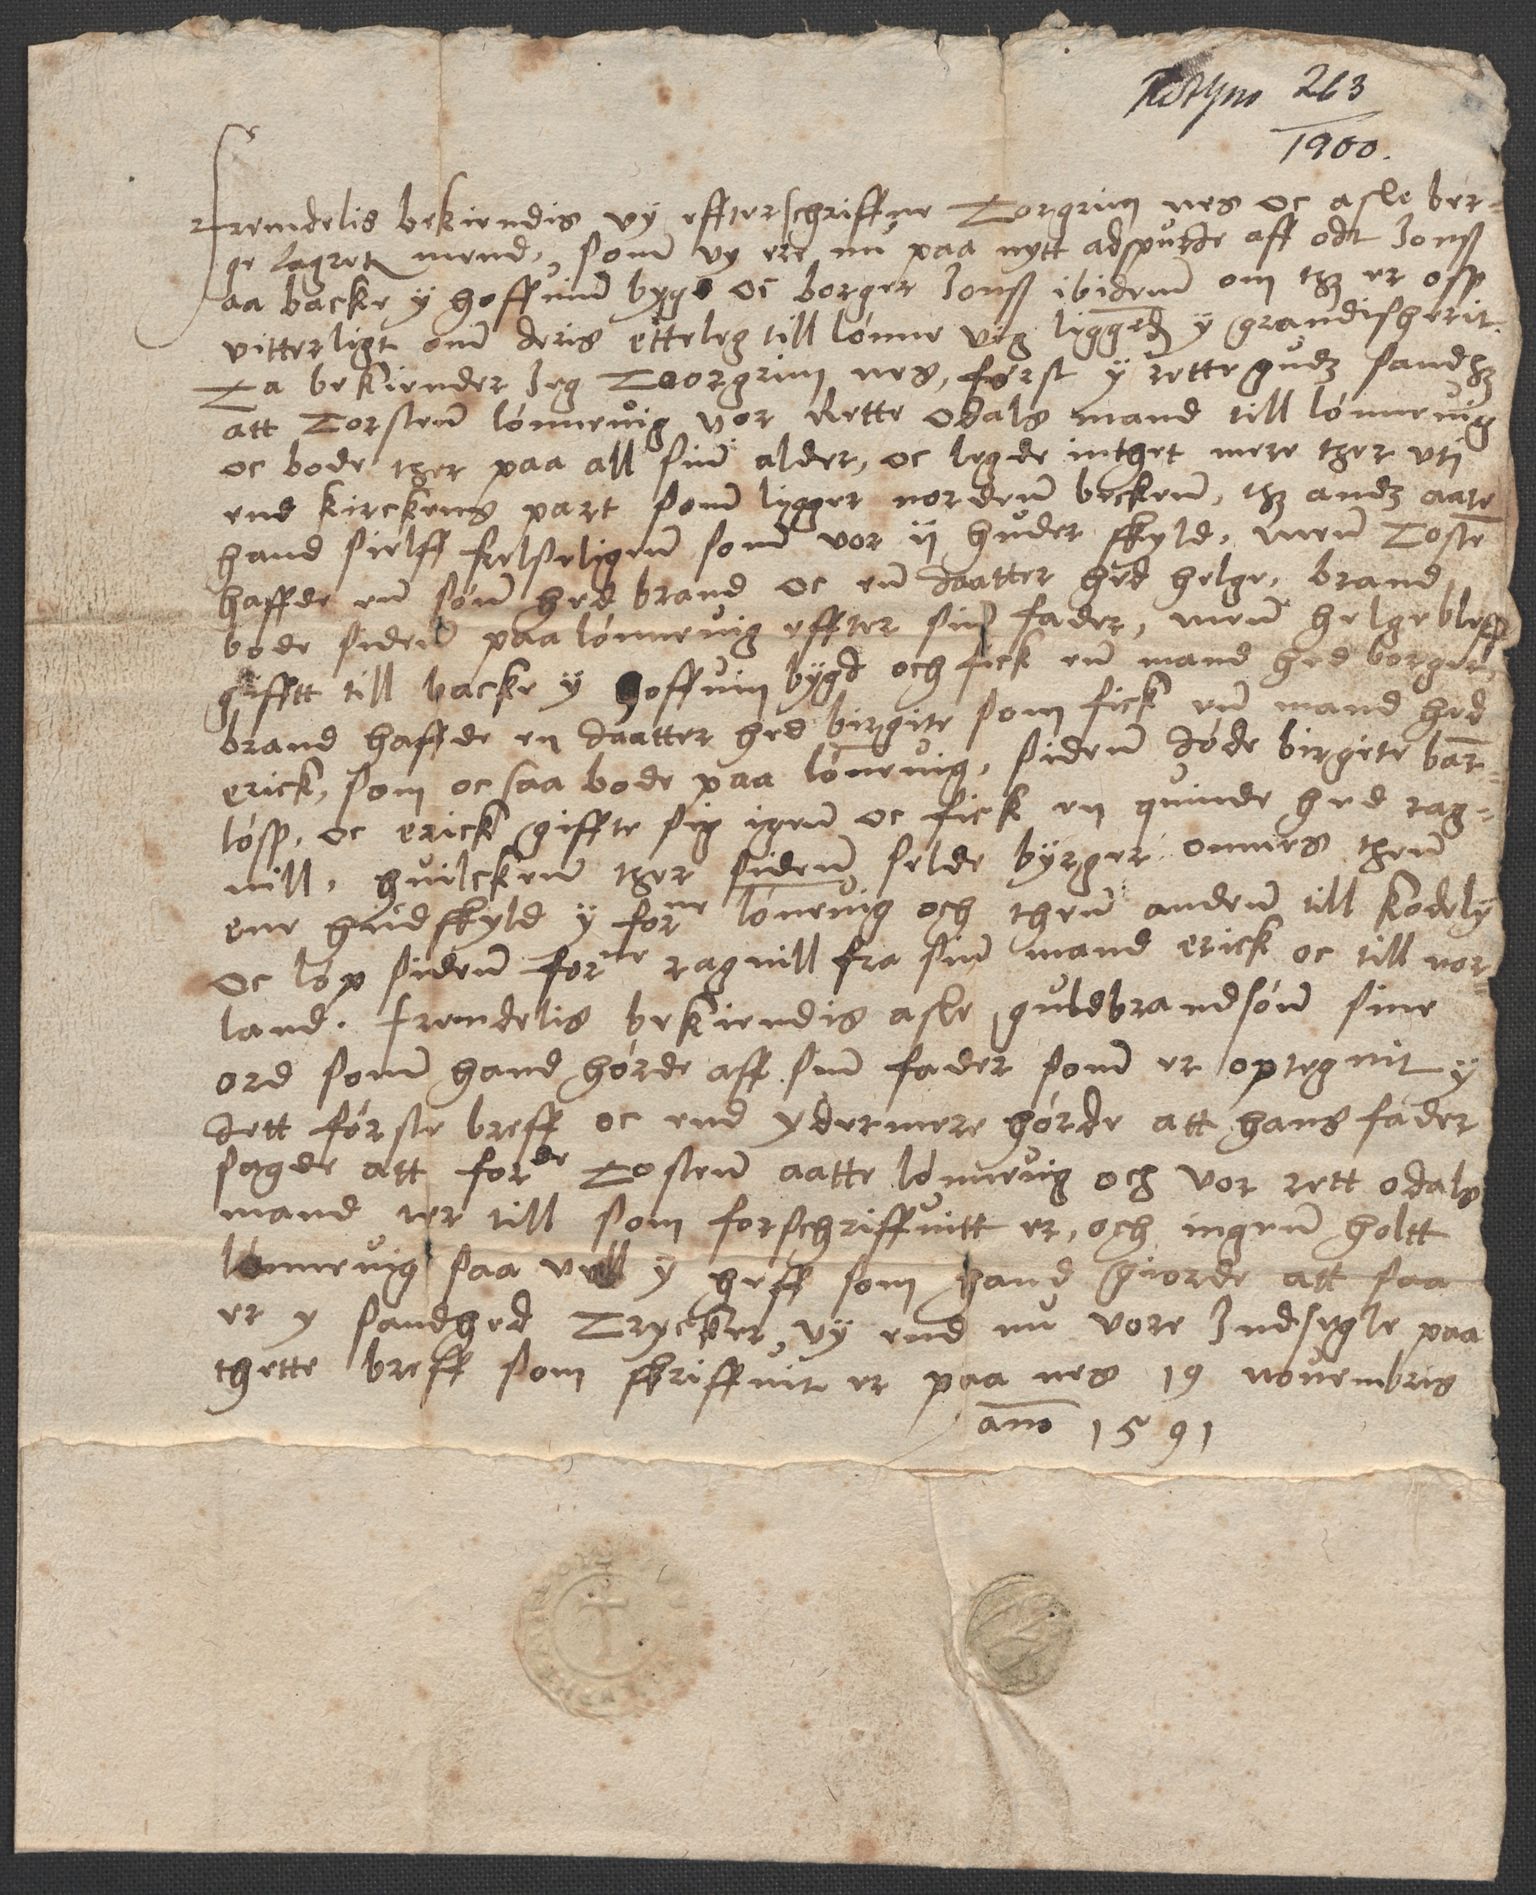 263
1900.
Fremdelis bekiendis vÿ effterschriffne Torgrim nes oc asle ber-
ge lagret mend, som vy ere nu paa nytt adspurde aff odt Jonß
aa backe ÿ hoffuin bygd oc borger Jonß ibidem om thz er osß
vitterligt om deris etteleg till lónne vig liggend ÿ grandisherit.
Ta bekiender Jeg Torgrim nes, først ÿ rette gudz sandhz
att Torsten lónnevig vor Rette odals mand till lónnevig
oc bode ther paa all sin alder, oc legde inthet mere ther vti
end kirckens part som ligger norden becken, thz andz aatte
hand sielff frelseligen som vor ij huder skyld, men Toste
haffde en són hed brand oc en daatter hed helge, brand
bode siden paa lónnevig effter sin fader, men helge bleff
gifftt till backe ÿ hoffuin bÿgd och fick en mand hed borger,
brand haffde en daatter hed birgite som fick en mand hed
erick, som oc saa bode paa lónevig, siden dóde birgite bar-
lósß, oc erick giffte sig igen oc fick en quinde hed rag-
nill, huilcken ther siden selde bÿrger omnes then
ene hudskyld ÿ forne lónevig och then anden till kodelÿ
oc lóp siden forne ragnill fra sin mand erick oc till nor-
land. fremdelis bekiendis asle guldbrandsón sine
ord som hand hórde aff sin fader som er optegnit y
dett fórste breff oc end ydermere hórde att hans fader
sagde att forde Tosten aatte lónnevig och vor rett odals
mand ter till som forschriffuitt er, och ingen holtt
lónnevig saa vell y heff som hand giorde att saa
er y sandhed Trycker vÿ end nu vore Indsegle paa
thette breff som skriffuit er paa nes 19 novembris
ano 1591